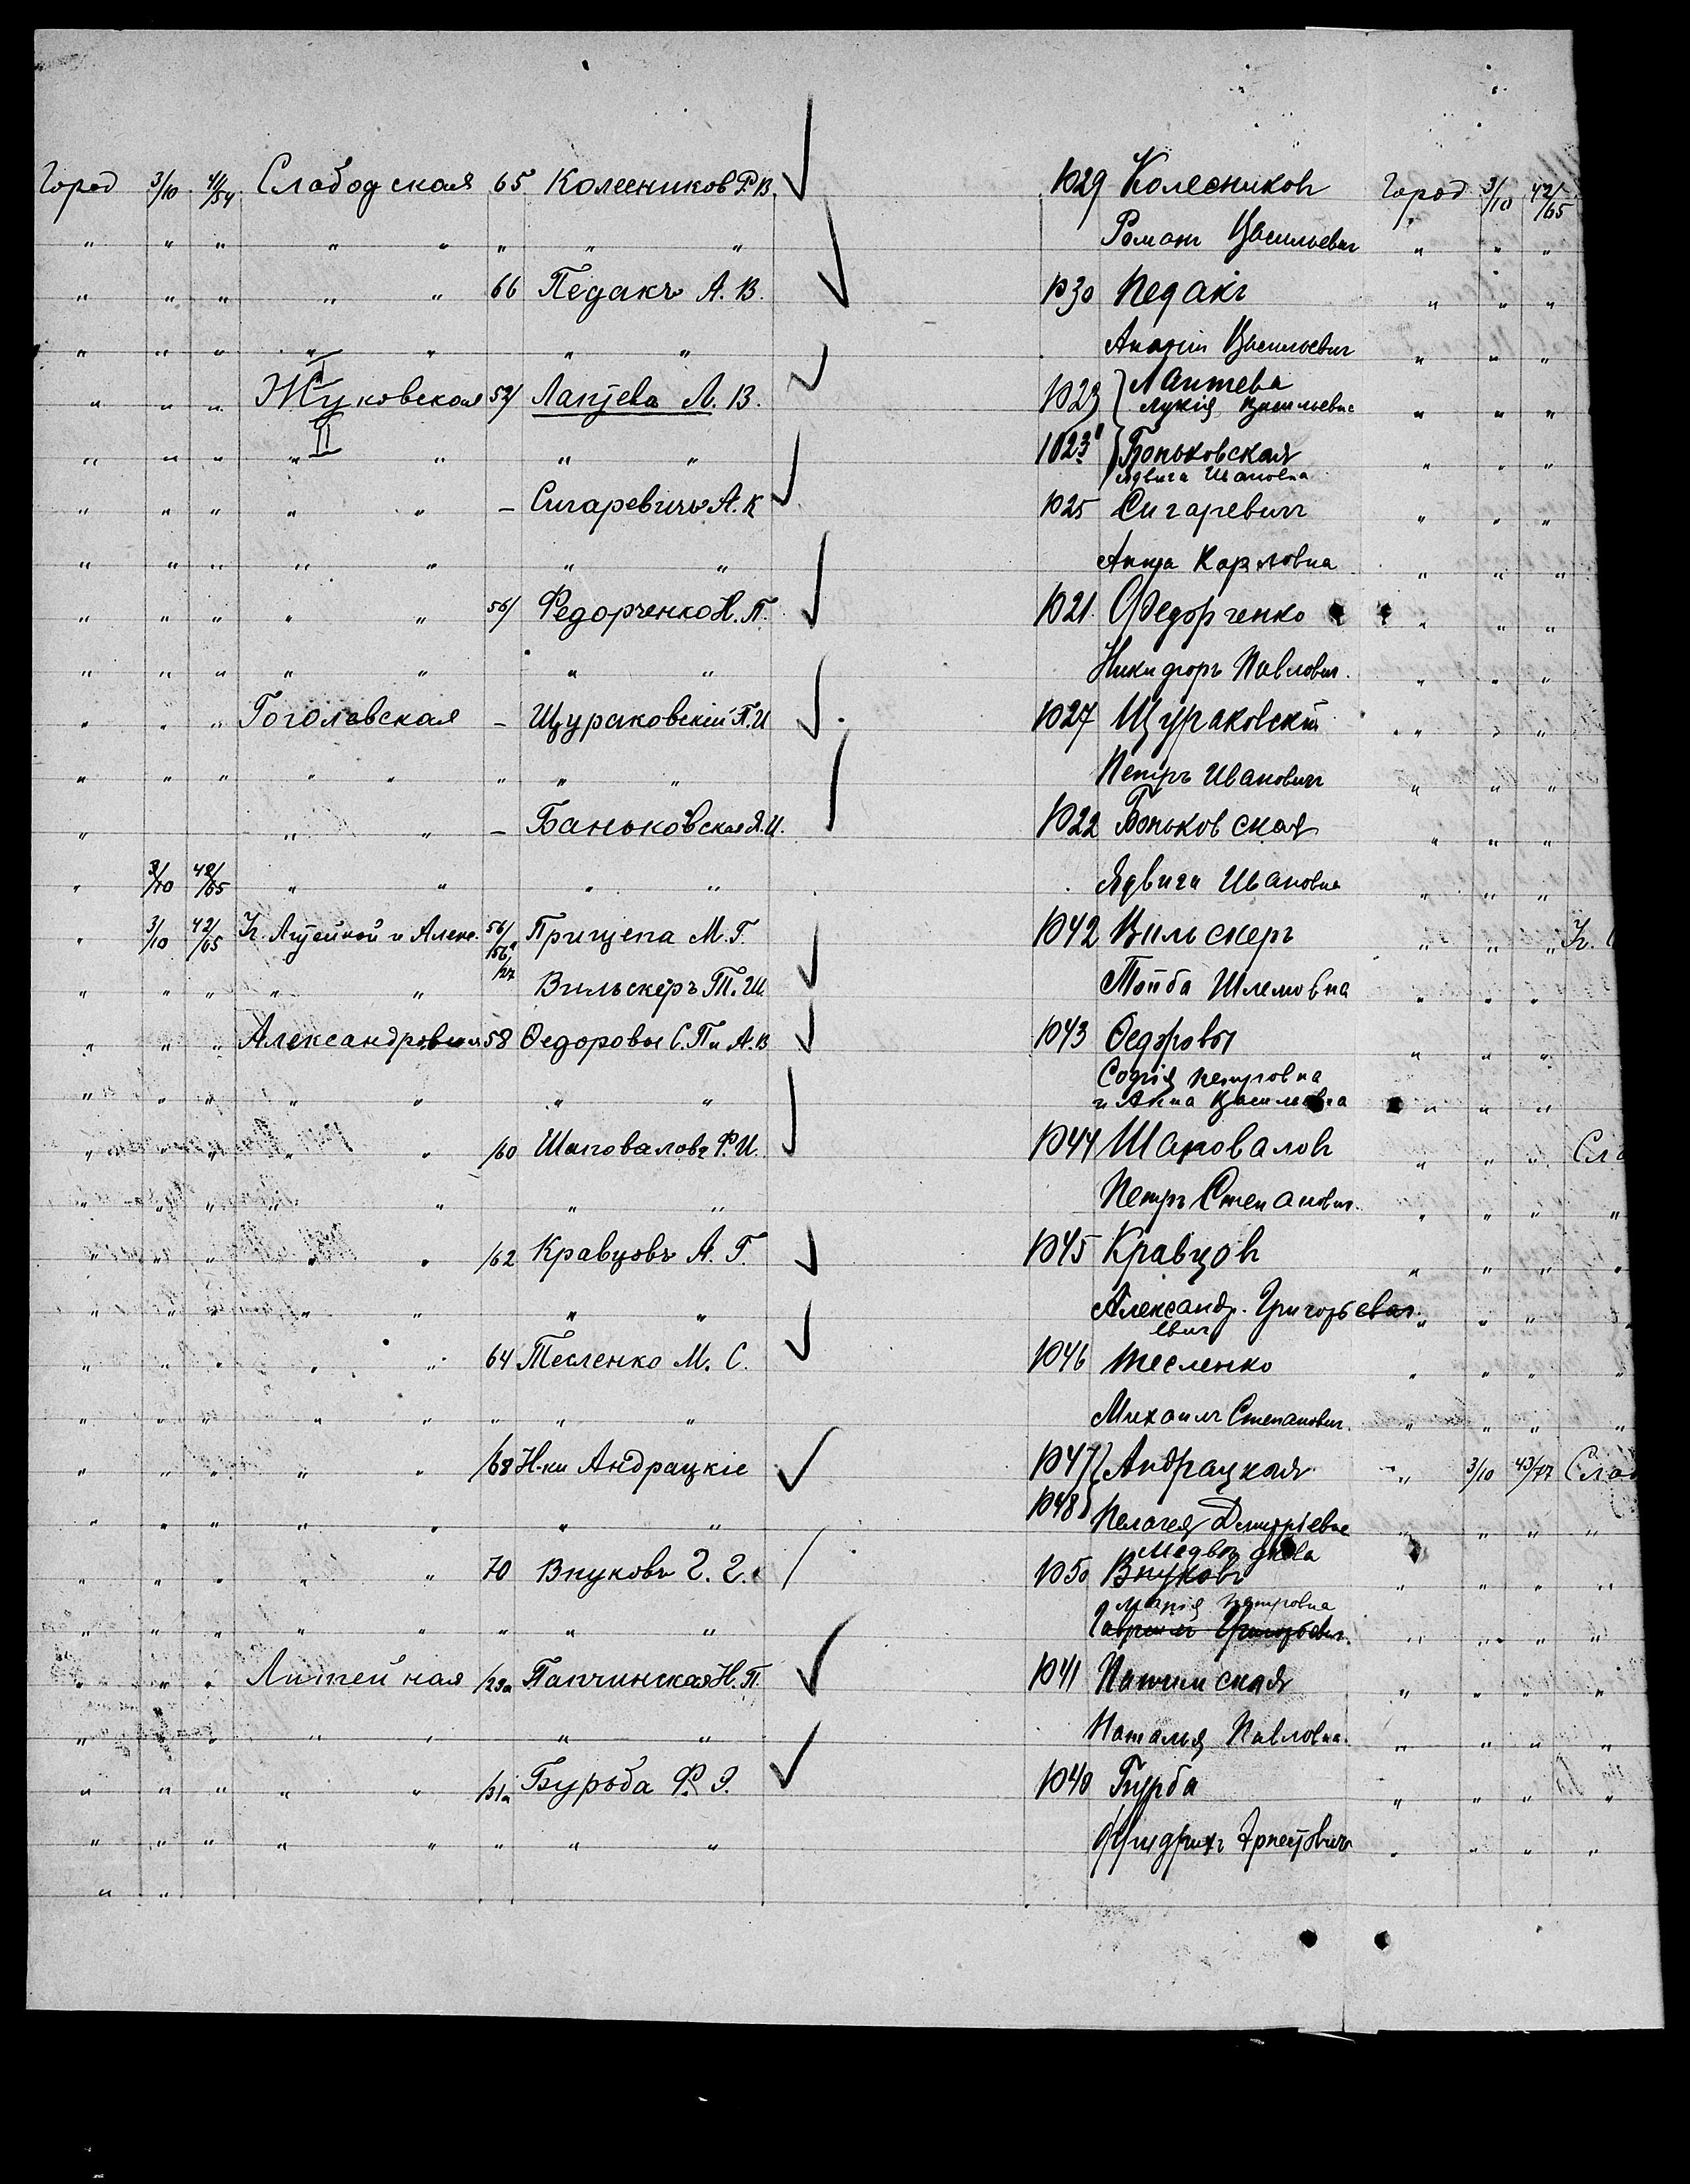 Город 3/10 41/54 Слабодская 65 Колесников Р. В. 1029 Колесниковъ Город 3/10 42/65
" " " " " " " " Романъ Васильевич " " "
" " " " " 66 Педакъ А. В. 1030 Педакъ " " "
" " " " " " " Васильевич " " "
" " " Жуковская 52/ Лаптева Л. В. 1023 Лаптева
Лукія Васильевн " " "
" " " II " " " " 1023" Боньковская " " "
Ядвига Ивановна
" " " " " – Сигаревичъ А. К 1025 Сигаревич " " "
" " " " " " " Анна Карловна " " "
" " " " " 56/ Федорченко Н. П. 1021. Федорченко " " "
" " " " " " " Никифоръ Павлович. " " "
" " " Гоголевская – Щураковскій П. И 1027 Щураковскій " " "
" " " " " " " " Петръ Иванович " " "
" " " – Баньковская Я. И. 1022 Боньковская " " "
" 3/10 42/65 " " " " Ядвига Ивановна " " "
" 3/10 42/65 Уг. Литейной и Алекс. 56/ Прищепа М. Г. 1042 Вильскеръ " " " Уг.
" " " " " Вильскеръ Т. Ш. Тойба Шлемовна " " "
" " " Александровская 58 Ѳедоровы С. П и А. В 1043 Ѳедоровы " " "
Софія Петровна
" " " " " " " и Анна Васильевна " " "
" " " " " /60 Шаповаловъ Ф. И. 1044 Шаповаловъ " " " Сло
" " " " " " " Петръ Степанович. " " " "
" " " " " /62 Кравцовъ А. Г. 1045 Кравцовъ " " " "
" " " " " " " Александр. Григорьевич " " "
евич
" " " " " 64 Тесленко М. С. 1046 Тесленко " " " "
" " " " " " " " Михаилъ Степанович. " " " "
" " " " " /68 Н-ки Андрацкіе 1047 Андрацкая " 3/10 43/77 Слоб
" " " " " " " 1048 Пелагея Дмитріевн " " " "
" " " " " 70 Внуковъ Г. Г. 1050 Внуковъ " " " "
Марія Петровна
" " " " " " " " Гавриилъ Григорьевич. " " " "
" " " Литейная /29а Папчинская Н. П. 1041 Папчинская " " " "
" " " " " " " Наталья Павловна. " " " "
" " " " " /31а Бурьба Ф. Э. 1040 Бурба " " " "
" " " " " " " " Фридрихъ Эрнестович " " " "
" "